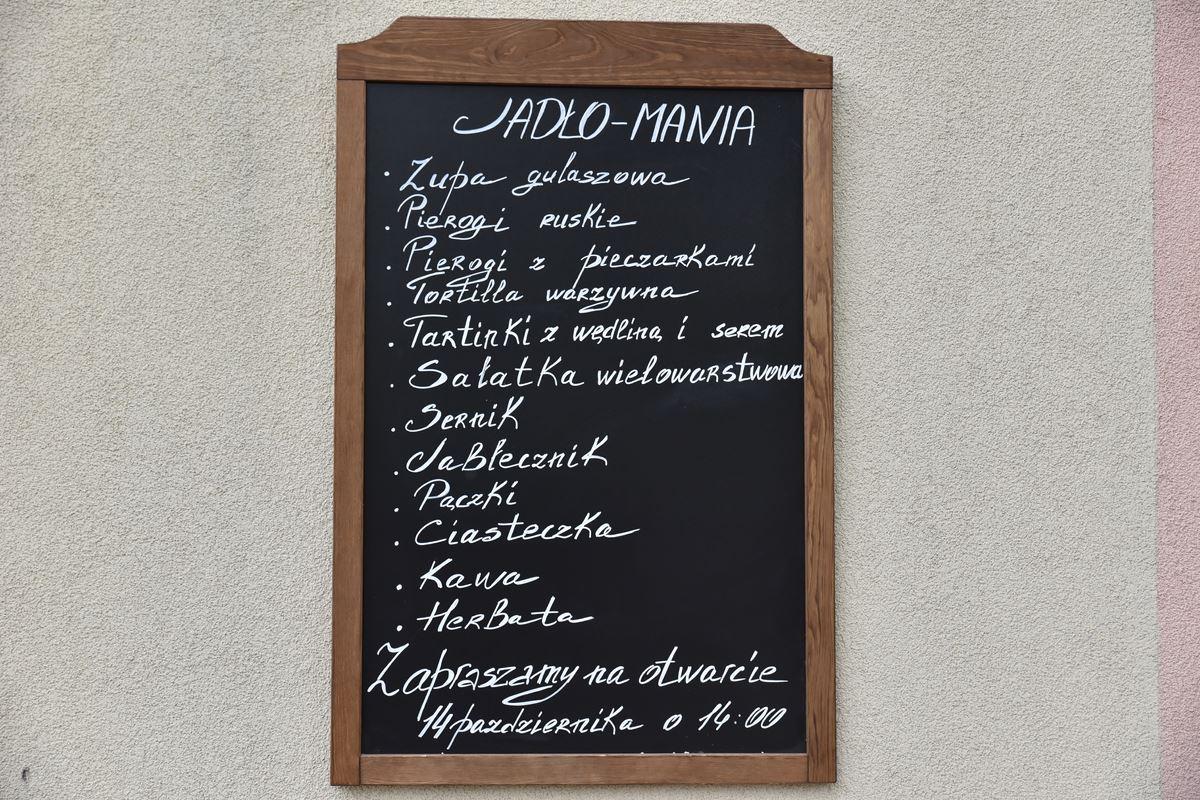 JADŁO-MANIA
· Zupa gulaszowa
. Pierogi ruskie
. Pierogi z pieczarkami
. Tortilla warzywna
. Tartinki z wędliną i serem
. Sałatka wielowarstwowa
. Sernik
. Jabłecznik
. Pączki
. Ciasteczka
. Kawa
. Herbata
Zapraszamy na otwarcie
14 października o 14:00